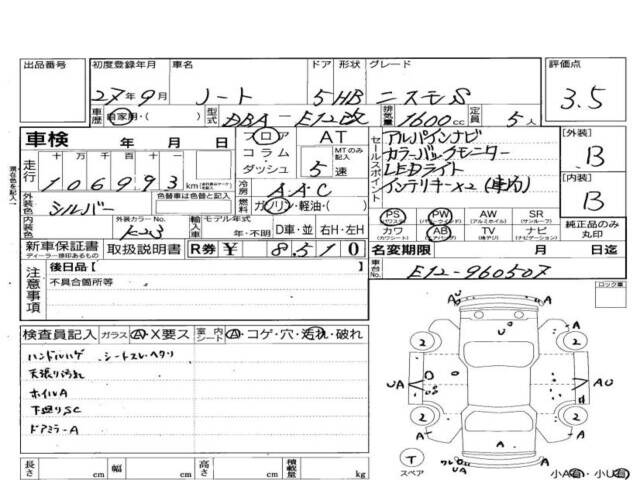 出品番号 初度登録年月 車名 ドア 形状 グレード 評価点
27年9月 ノート 5 HB ニスモS 3.5
車歴 自家用・( ) 型式 DBA-E12改 排気量 1600cc 定員 5人
車検 年 月 日 フロア・コラム・ダッシュ AT MTのみ記入 5速
セールスポイント
アルパインナビ
カラーバックモニター
LEDライト
インテリキー×2(車内)
[外装] B
[内装] B
走行 十万 万 千 百 十 一
106993 km
冷房 AAC
燃料 ガソリン・軽油・( )
外装色 シルバー 色替車は色替と記入
内装色 外装カラーNo. K23 輸入車 モデル年式 年・不明 D車・並 右H・左H
PS PW AW SR
(パワステ) (パワーウィンドウ) (アルミホイル) (サンルーフ)
カワ AB TV ナビ
(カワシート) (エアバッグ) (純テレビ) (ナビゲーション)
純正品のみ丸印
新車保証書 取扱説明書 R券 ¥8,510
ディーラー捺印あるもの
名変期限 月 日迄
車台No. E12-960507
注意事項
後日品[
不具合箇所等
ロック車
検査員記入 ガラス A・X要ス 室内シート A・コゲ・穴・汚れ・破れ
ハンドルハゲ シートスレ・ヘタリ
天張り汚れ
ホイルA
下廻りSC
ドアミラーA
A U A
U
A A
2 2
UA D AU
2 2
A A
U
T
スペア
UA
小A有・小U有
長さ cm 幅 cm 高さ cm 積載量 kg